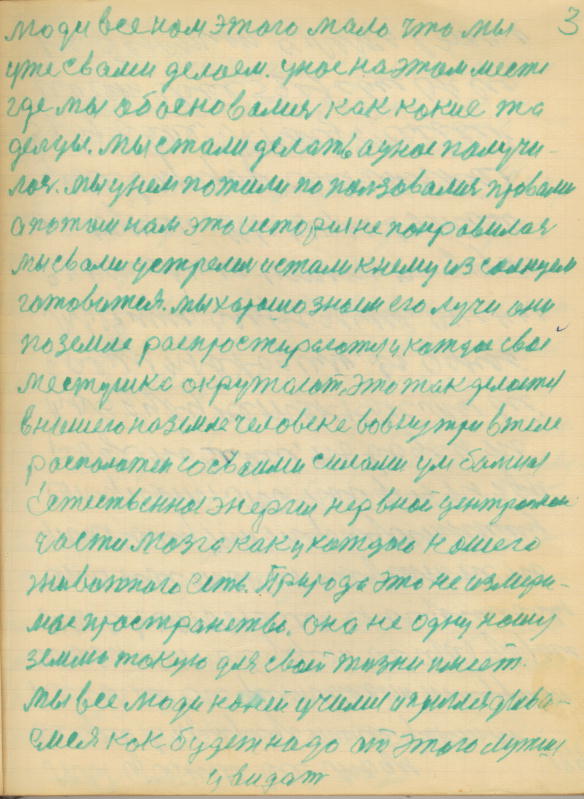 3
люди все нам этого мало что мы
уже свами делаем. унас на этом месте
где мы обосновалися как какие та
делцы. мы стали делать а унас получи-
лося. мы унем пожили по ползовалися правами
а потом нам это история не понравилася
мы свами устремил истали книму из солнцем
готовится. мы харошо знаем его лучи они
по земле распростираются и каждое свае
местушка окружают, это так делается
в нашего на земле человеке вовнутри в теле
расположен со сваими силами
естественная энергия нервной центральной
части мозга как у каждого нашего
животного есть. Природа это не измери-
мае пространство. она не одну нашу
землю такую для своей жизни имеет.
мы все люди на ней учимся и приглядыва-
емся как будет надо от этого лутшие
увидат